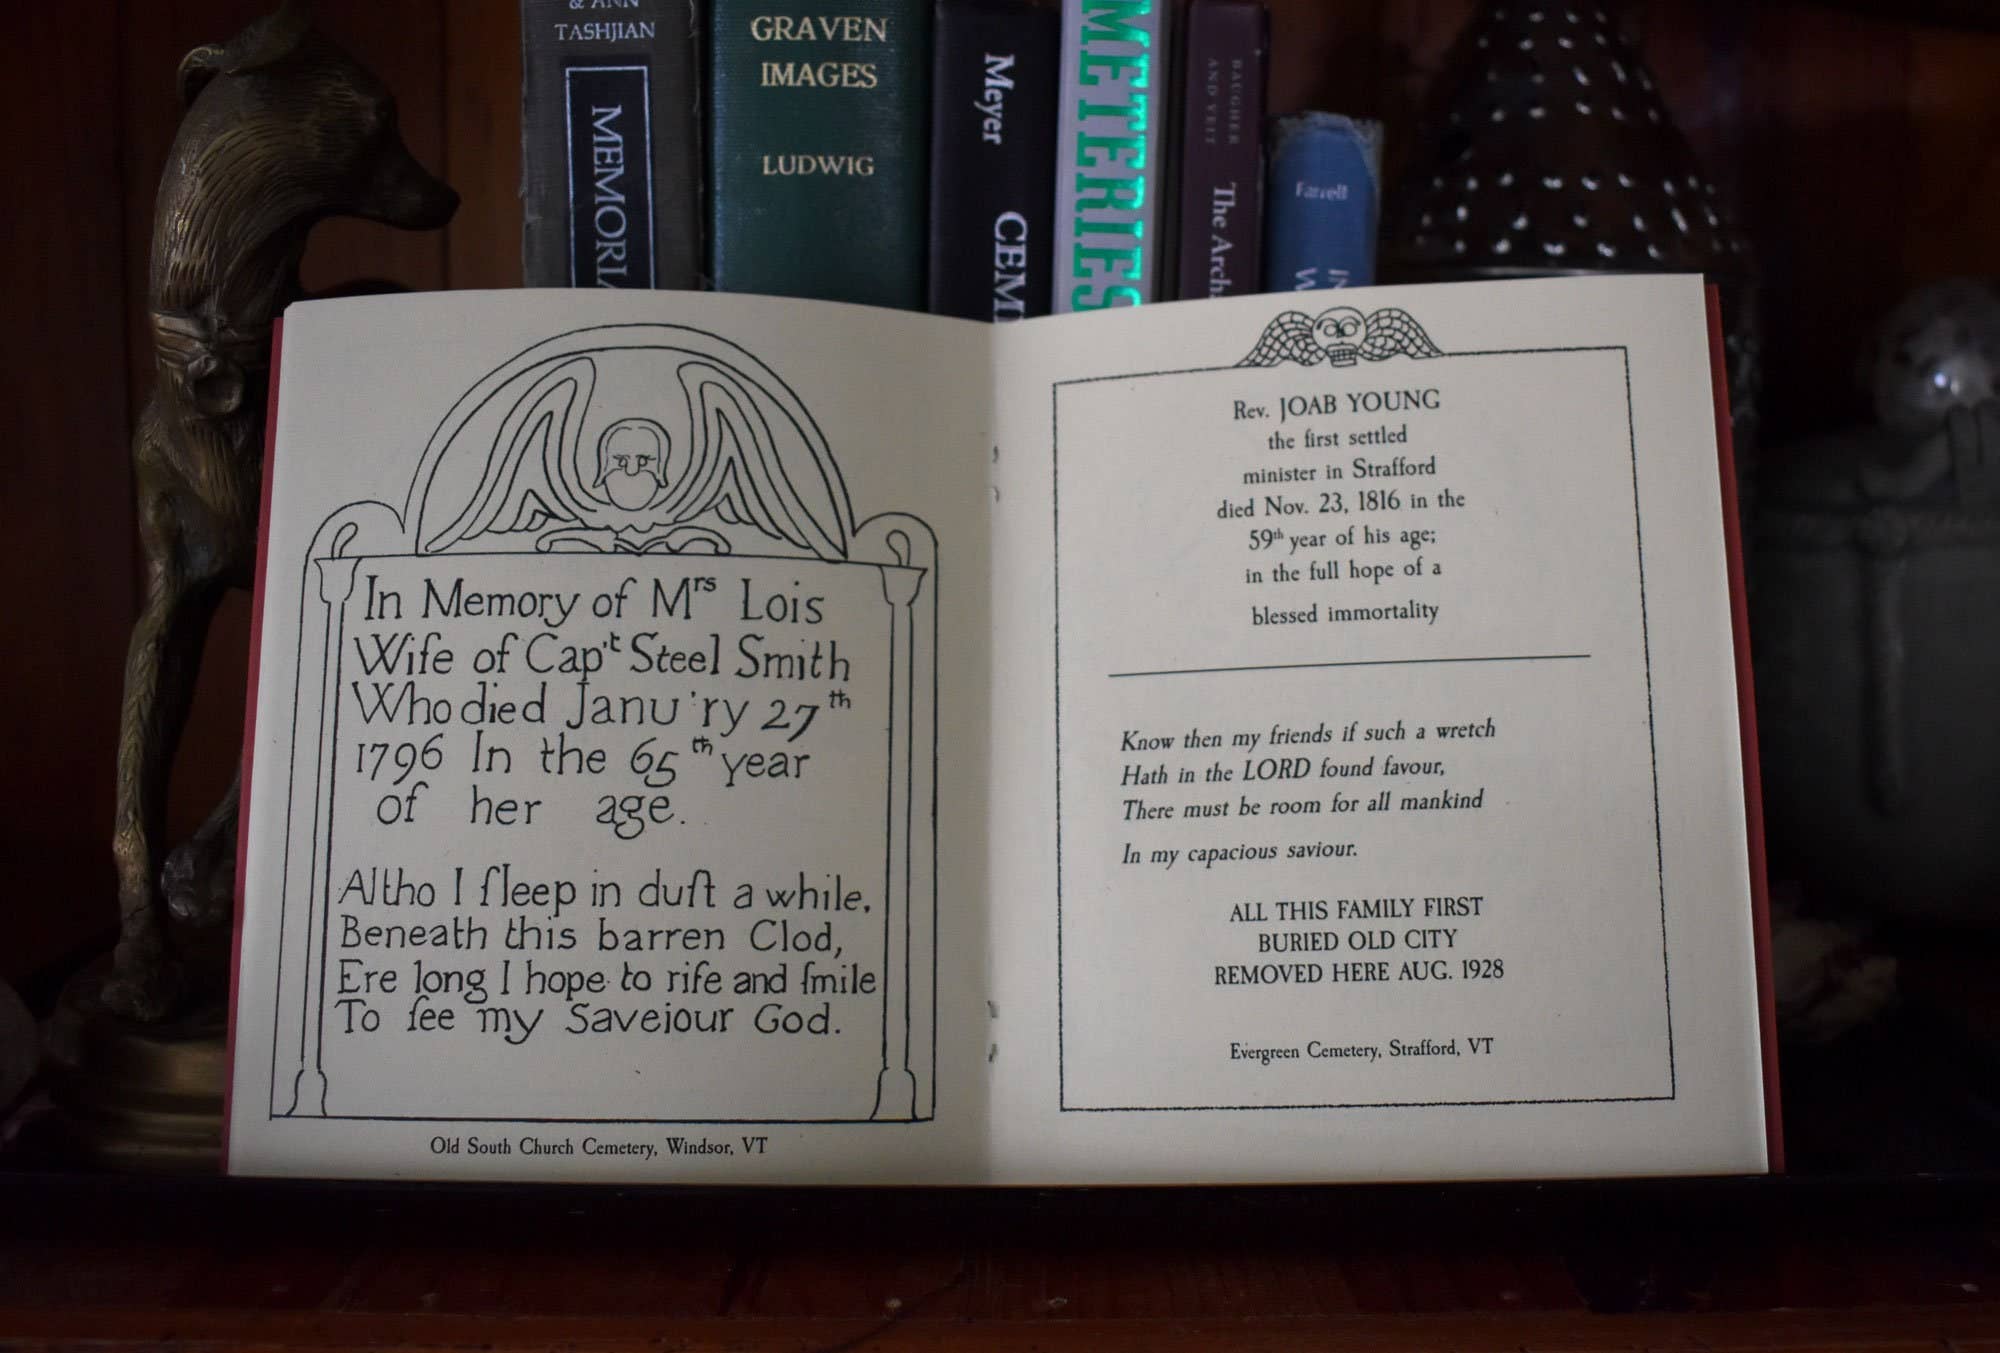 & ANN
TASHJIAN
GRAVEN
IMAGES
LUDWIG
Meyer
METERIES
BAUGHER
AND VEIT
The Arch
Farrell
In Memory of Mrs Lois
Wife of Cap't Steel Smith
Who died Janu'ry 27th
1796 In the 65th year
of her age.
Altho I ſleep in duſt a while,
Beneath this barren Clod,
Ere long I hope to riſe and ſmile
To ſee my Saveiour God.
Old South Church Cemetery, Windsor, VT
Rev. JOAB YOUNG
the first settled
minister in Strafford
died Nov. 23, 1816 in the
59th year of his age;
in the full hope of a
blessed immortality
Know then my friends if such a wretch
Hath in the LORD found favour,
There must be room for all mankind
In my capacious saviour.
ALL THIS FAMILY FIRST
BURIED OLD CITY
REMOVED HERE AUG. 1928
Evergreen Cemetery, Strafford, VT